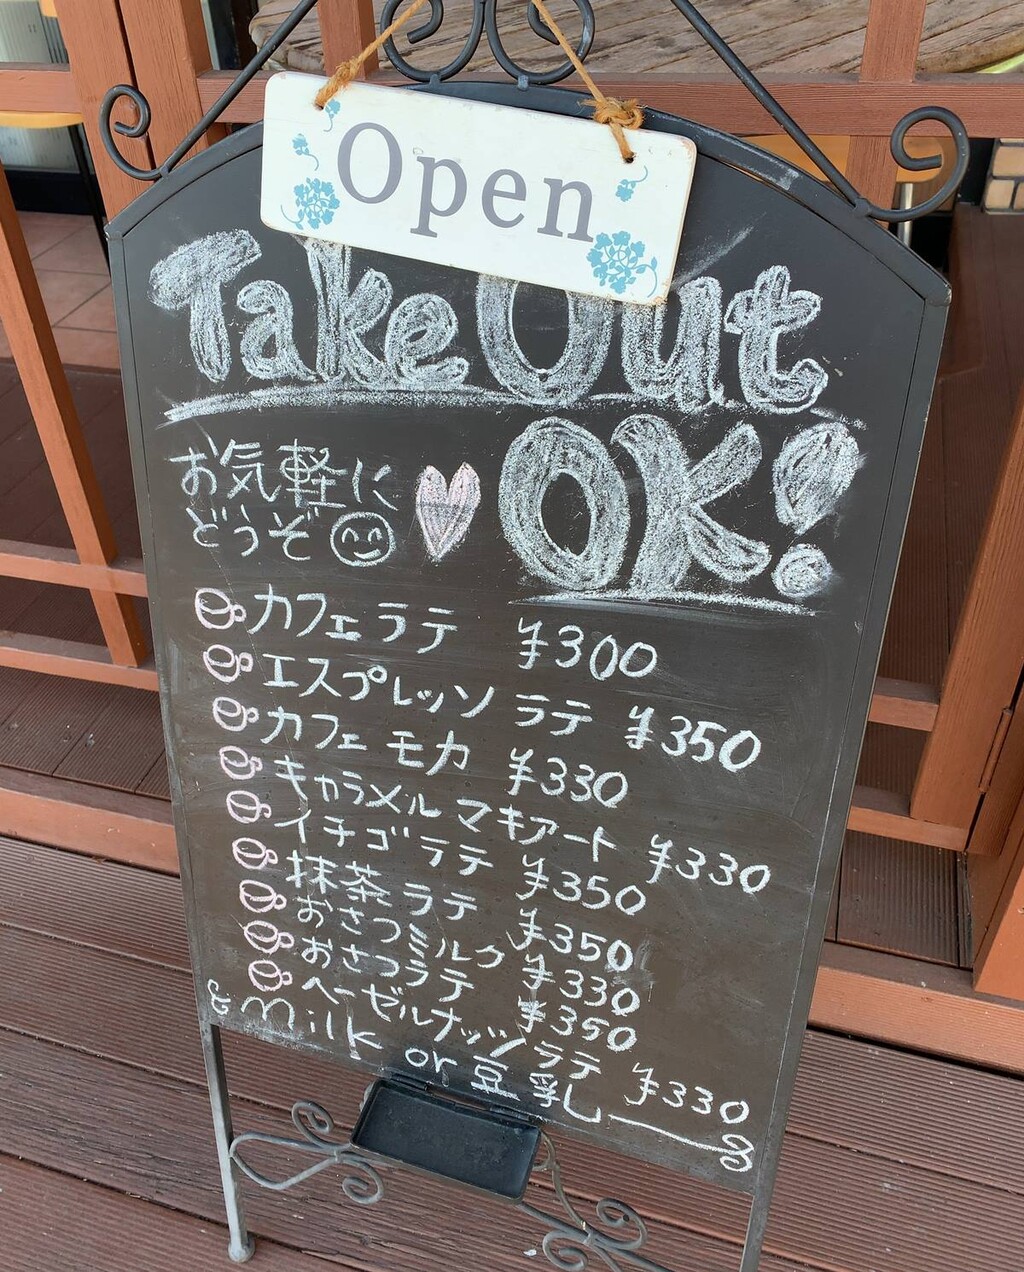 Open
Take Out
OK!
お気軽に
どうぞ
カフェラテ ¥300
エスプレッソ ラテ ¥350
カフェ モカ ¥330
キャラメル マキアート ¥330
イチゴ ラテ ¥350
抹茶 ラテ ¥350
おさつミルク ¥330
おさつラテ ¥350
ヘーゼルナッツラテ ¥330
milk or 豆乳